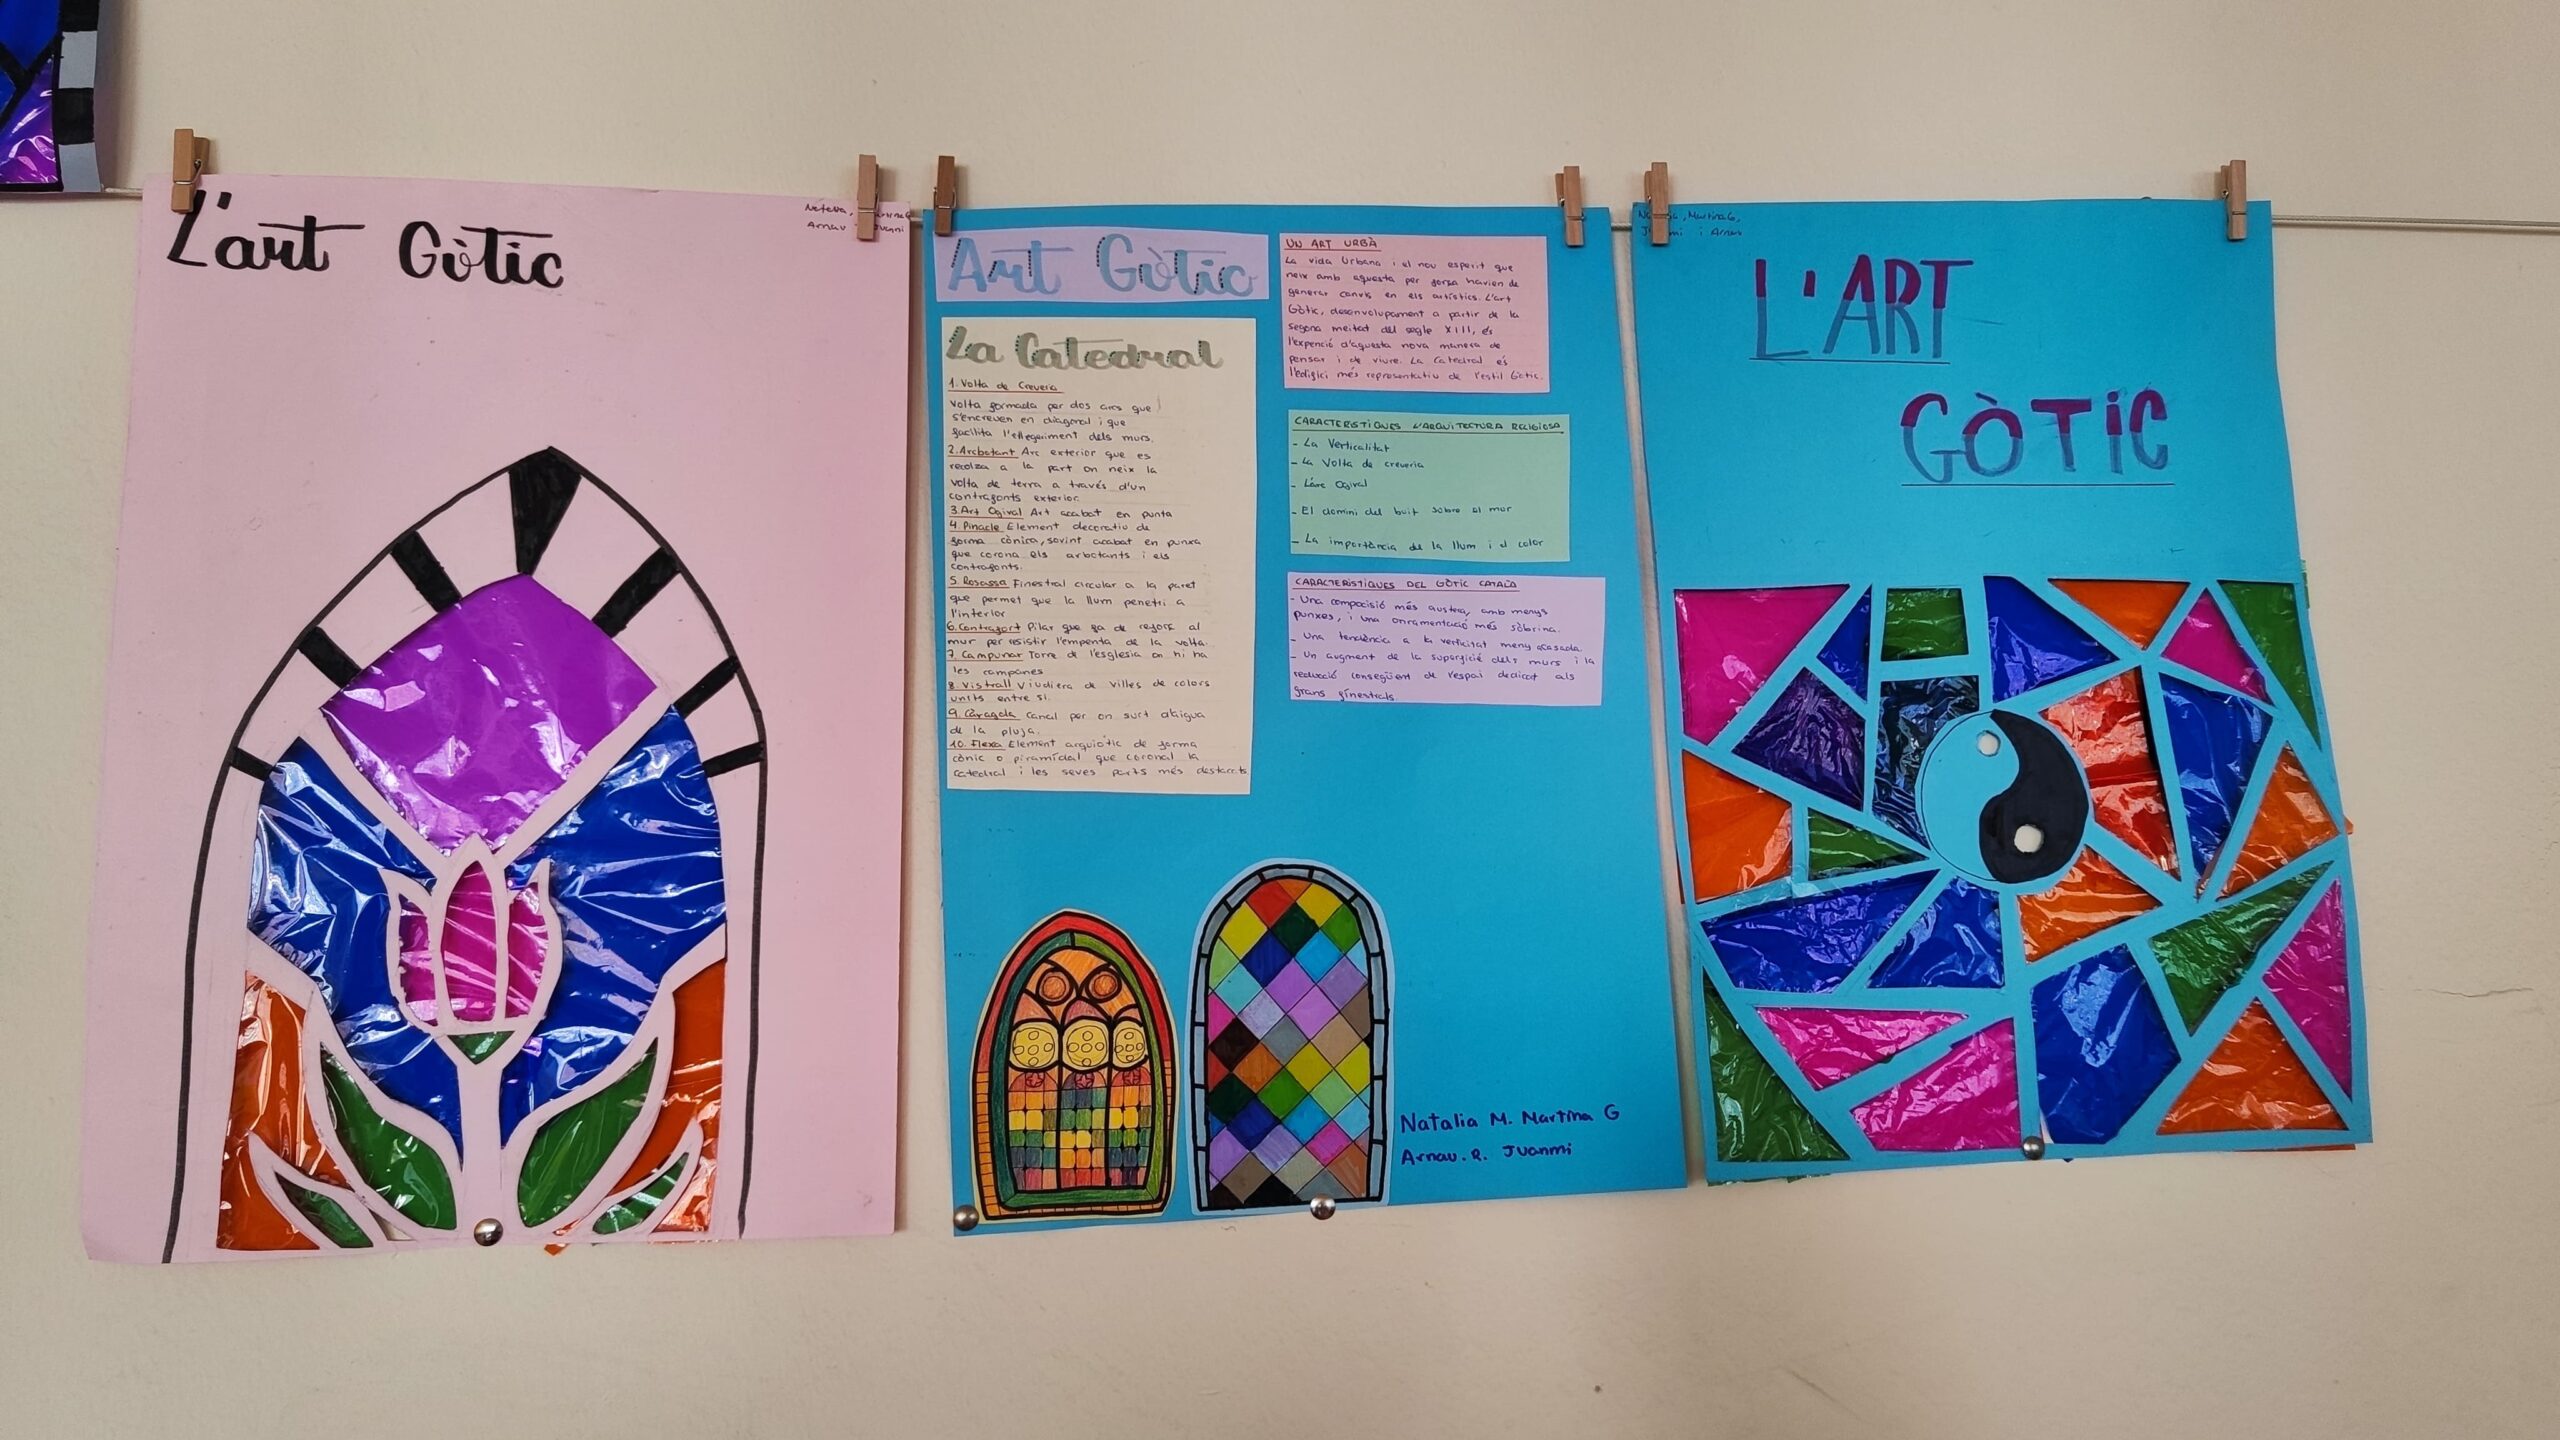 L'art Gòtic
Arnau Juanmi
Art Gòtic
La Catedral
1. Volta de Creueria
Volta formada per dos arcs que
s'encreven en diagonal i que
facilita l'ellegaiment dels murs.
2. Arcbotant Arc exterior que es
recolza a la part on neix la
volta de terra a través d'un
contraforts exterior.
3. Art Ogival Art acabat en punta
4. Pinacle Element decoratiu de
forma cònica, sovint acabat en punxa
que corona els arbotants i els
contraforts.
5. Rosassa Finestral circular a la paret
que permet que la llum penetri a
l'interior
6. Contrafort Pilar que fa de reforç al
mur per resistir l'empenta de la volta.
7. Campunar Torre de l'esglesia on hi ha
les campanes
8. Vistrall Viudiera de villes de colors
units entre si.
9. Caragola Canal per on surt d'aigua
de la pluja.
10. Flexa Element arquiotic de forma
cònic o piramídal que coronal la
catedral i les seves parts més destacats
UN ART URBÀ
La vida Urbana i el nou esperit que
neix amb aquesta per força havien de
generar canvis en els artístics. L'art
Gòtic, desenvolupament a partir de la
segona meitat del segle XIII, és
l'expenció d'aquesta nova manera de
pensar i de viure. La Catedral és
l'edifici més representatiu de l'estil Gòtic.
CARACTERISTIQUES L'ARQUITECTURA RELIGIOSA
- La Verticalitat
- La Volta de creueria
- L'arc Ogival
- El domini del buit sobre el mur
- La importància de la llum i el color
CARACTERISTIQUES DEL GÒTIC CATALÀ
- Una composisió més austera, amb menys
punxes, i una onramentació més sòbrina.
- Una tendència a la verticitat meny acasada.
- Un augment de la superfície dels murs i la
reducció conseqüent de l'espai dedicat als
grans finestrals
Natalia M. Martina G
Arnau. R. Juanmi
Martina G,
i Arnau
L'ART
GÒTIC